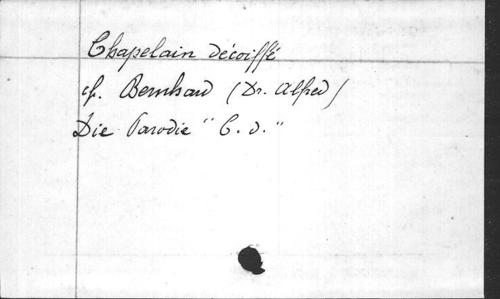 Chapelain décoiffé
cf. Bernhard (Dr. Alfred)
Die Parodie "C. d."